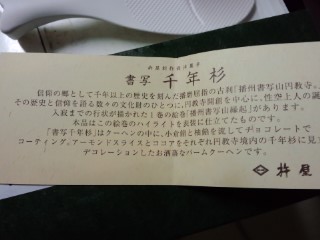 書写 千年杉
信仰の郷として千年以上の歴史を刻んだ播磨屈指の古刹「播州書写山円教寺」。
その歴史と信仰を語る数々の文化財のひとつに、円教寺開創を中心に、性空上人の誕
入寂までの行状が描かれた1巻の絵巻「播州書写山縁起」があります。
本品はこの絵巻のハイライトを表装に仕立てたものです。
「書写千年杉」はクーヘンの中に、小倉餡と柚餡を流してチョコレートで
コーティング。アーモンドスライスとココアをそれぞれ円教寺境内の千年杉に見立
デコレーションしたお洒落なバームクーヘンです。
杵屋